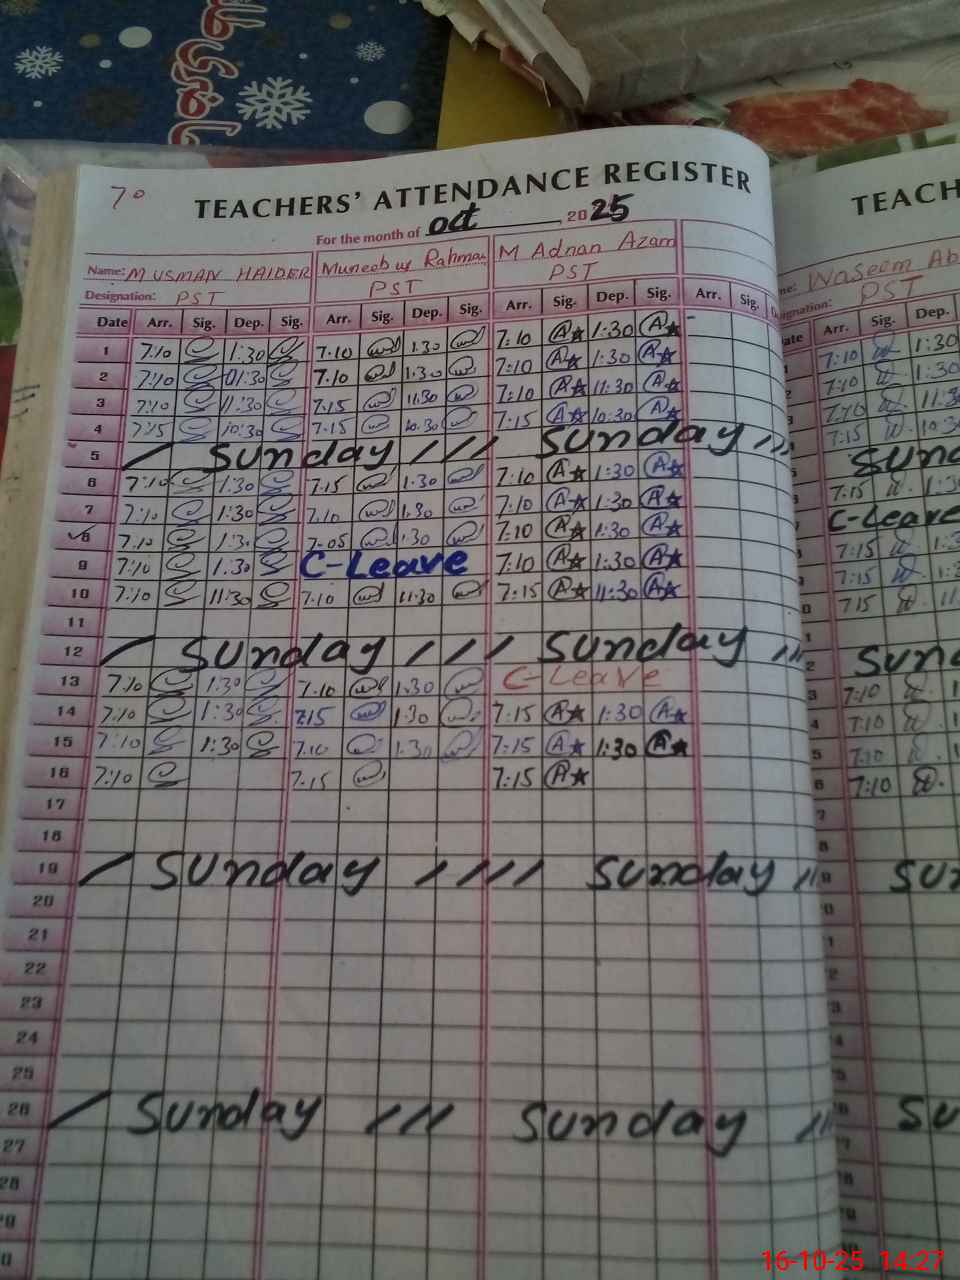 7°
TEACHERS' ATTENDANCE REGISTER
For the month of oct, 2025
Name: M USMAN HAIDER Muneeb ur Rahman M Adnan Azam
Designation: PST PST PST
Date Arr. Sig. Dep. Sig. Arr. Sig. Dep. Sig. Arr. Sig. Dep. Sig. Arr. Sig.
1 7:10 1:30 7:10 1:30 7:10 1:30
2 7:10 01:30 7:10 1:30 7:10 1:30
3 7:10 11:30 7:15 11:30 7:10 11:30
4 7:15 10:30 7:15 10:30 7:15 10:30
5 Sunday Sunday
6 7:10 1:30 7:15 1:30 7:10 1:30
7 7:10 1:30 7:10 1:30 7:10 1:30
8 7:10 1:30 7:05 1:30 7:10 1:30
9 7:10 1:30 C-Leave 7:10 1:30
10 7:10 11:30 7:10 11:30 7:15 11:30
11
12 Sunday Sunday
13 7:10 1:30 7:10 1:30 C-Leave
14 7:10 1:30 7:15 1:30 7:15 1:30
15 7:10 1:30 7:10 1:30 7:15 1:30
16 7:10 7:15 7:15
17
18
19 Sunday Sunday
20
21
22
23
24
25
26 Sunday Sunday
27
28
TEACH
Waseem Ab
PST
Arr. Sig. Dep.
7:10 1:30
7:10 1:30
7:10 11:3
7:15 10:3
Sund
7:15 1:3
C-Leave
7:15 1:3
7:15 1:
715 11
Sund
7:10
7:10
7:10
7:10
Sun
Su
16-10-25 14:27